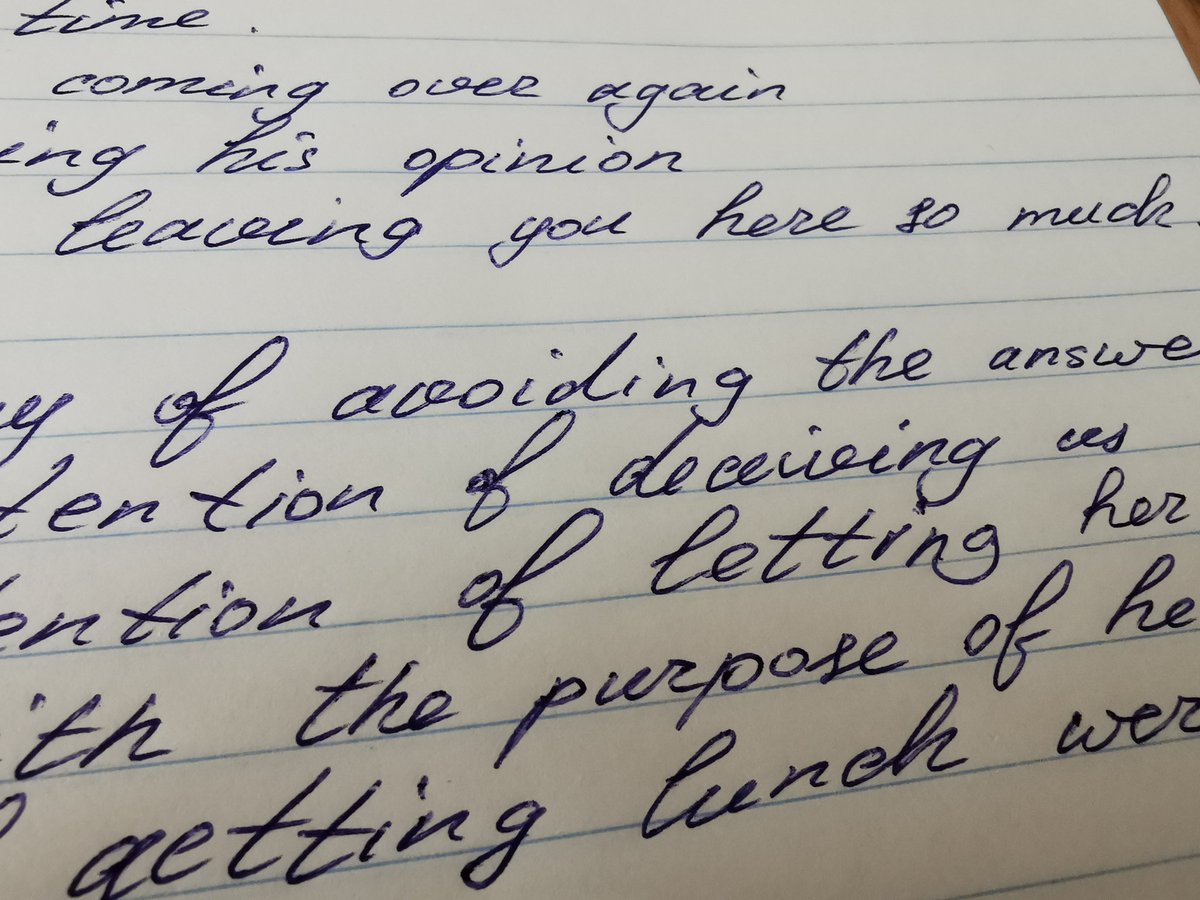 time.
coming over again
ing his opinion
leaving you here so much
y of avoiding the answe
tention of deceiving us
ention of letting her
ith the purpose of he
getting lunch wer